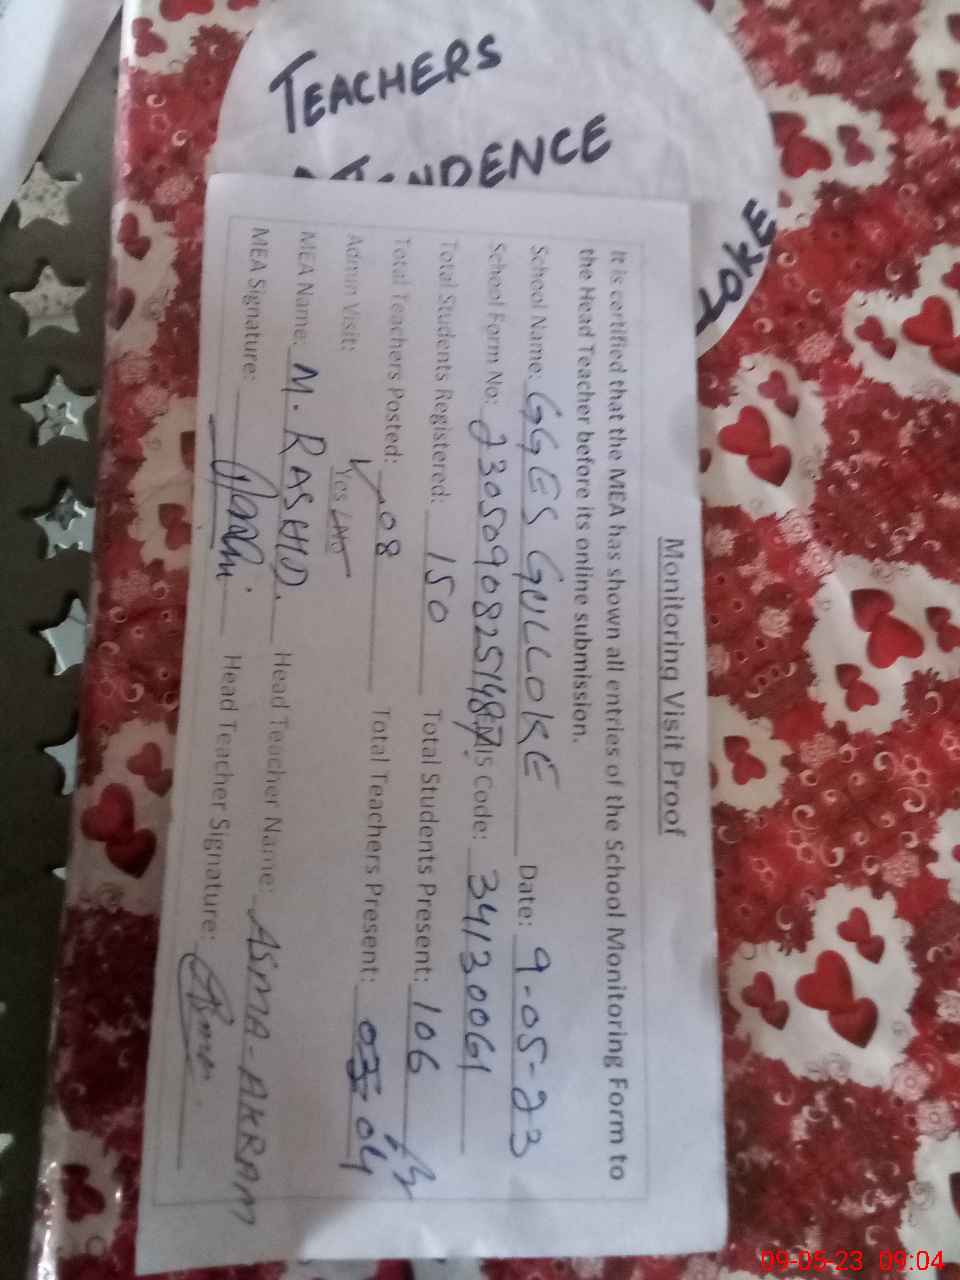 TEACHERS
LOKE
Monitoring Visit Proof
It is certified that the MEA has shown all entries of the School Monitoring Form to
the Head Teacher before its online submission.
School Name: GGES GULLOKE Date: 9-05-23
School Form No: EMIS Code: 34130061
Total Students Registered: 150 Total Students Present: 106
Total Teachers Posted: 08 Total Teachers Present: 04
Admin Visit: Yes / No
MEA Name: M. RASHID. Head Teacher Name: ASMA-AKRAM
MEA Signature: Head Teacher Signature:
09-05-23 09:04